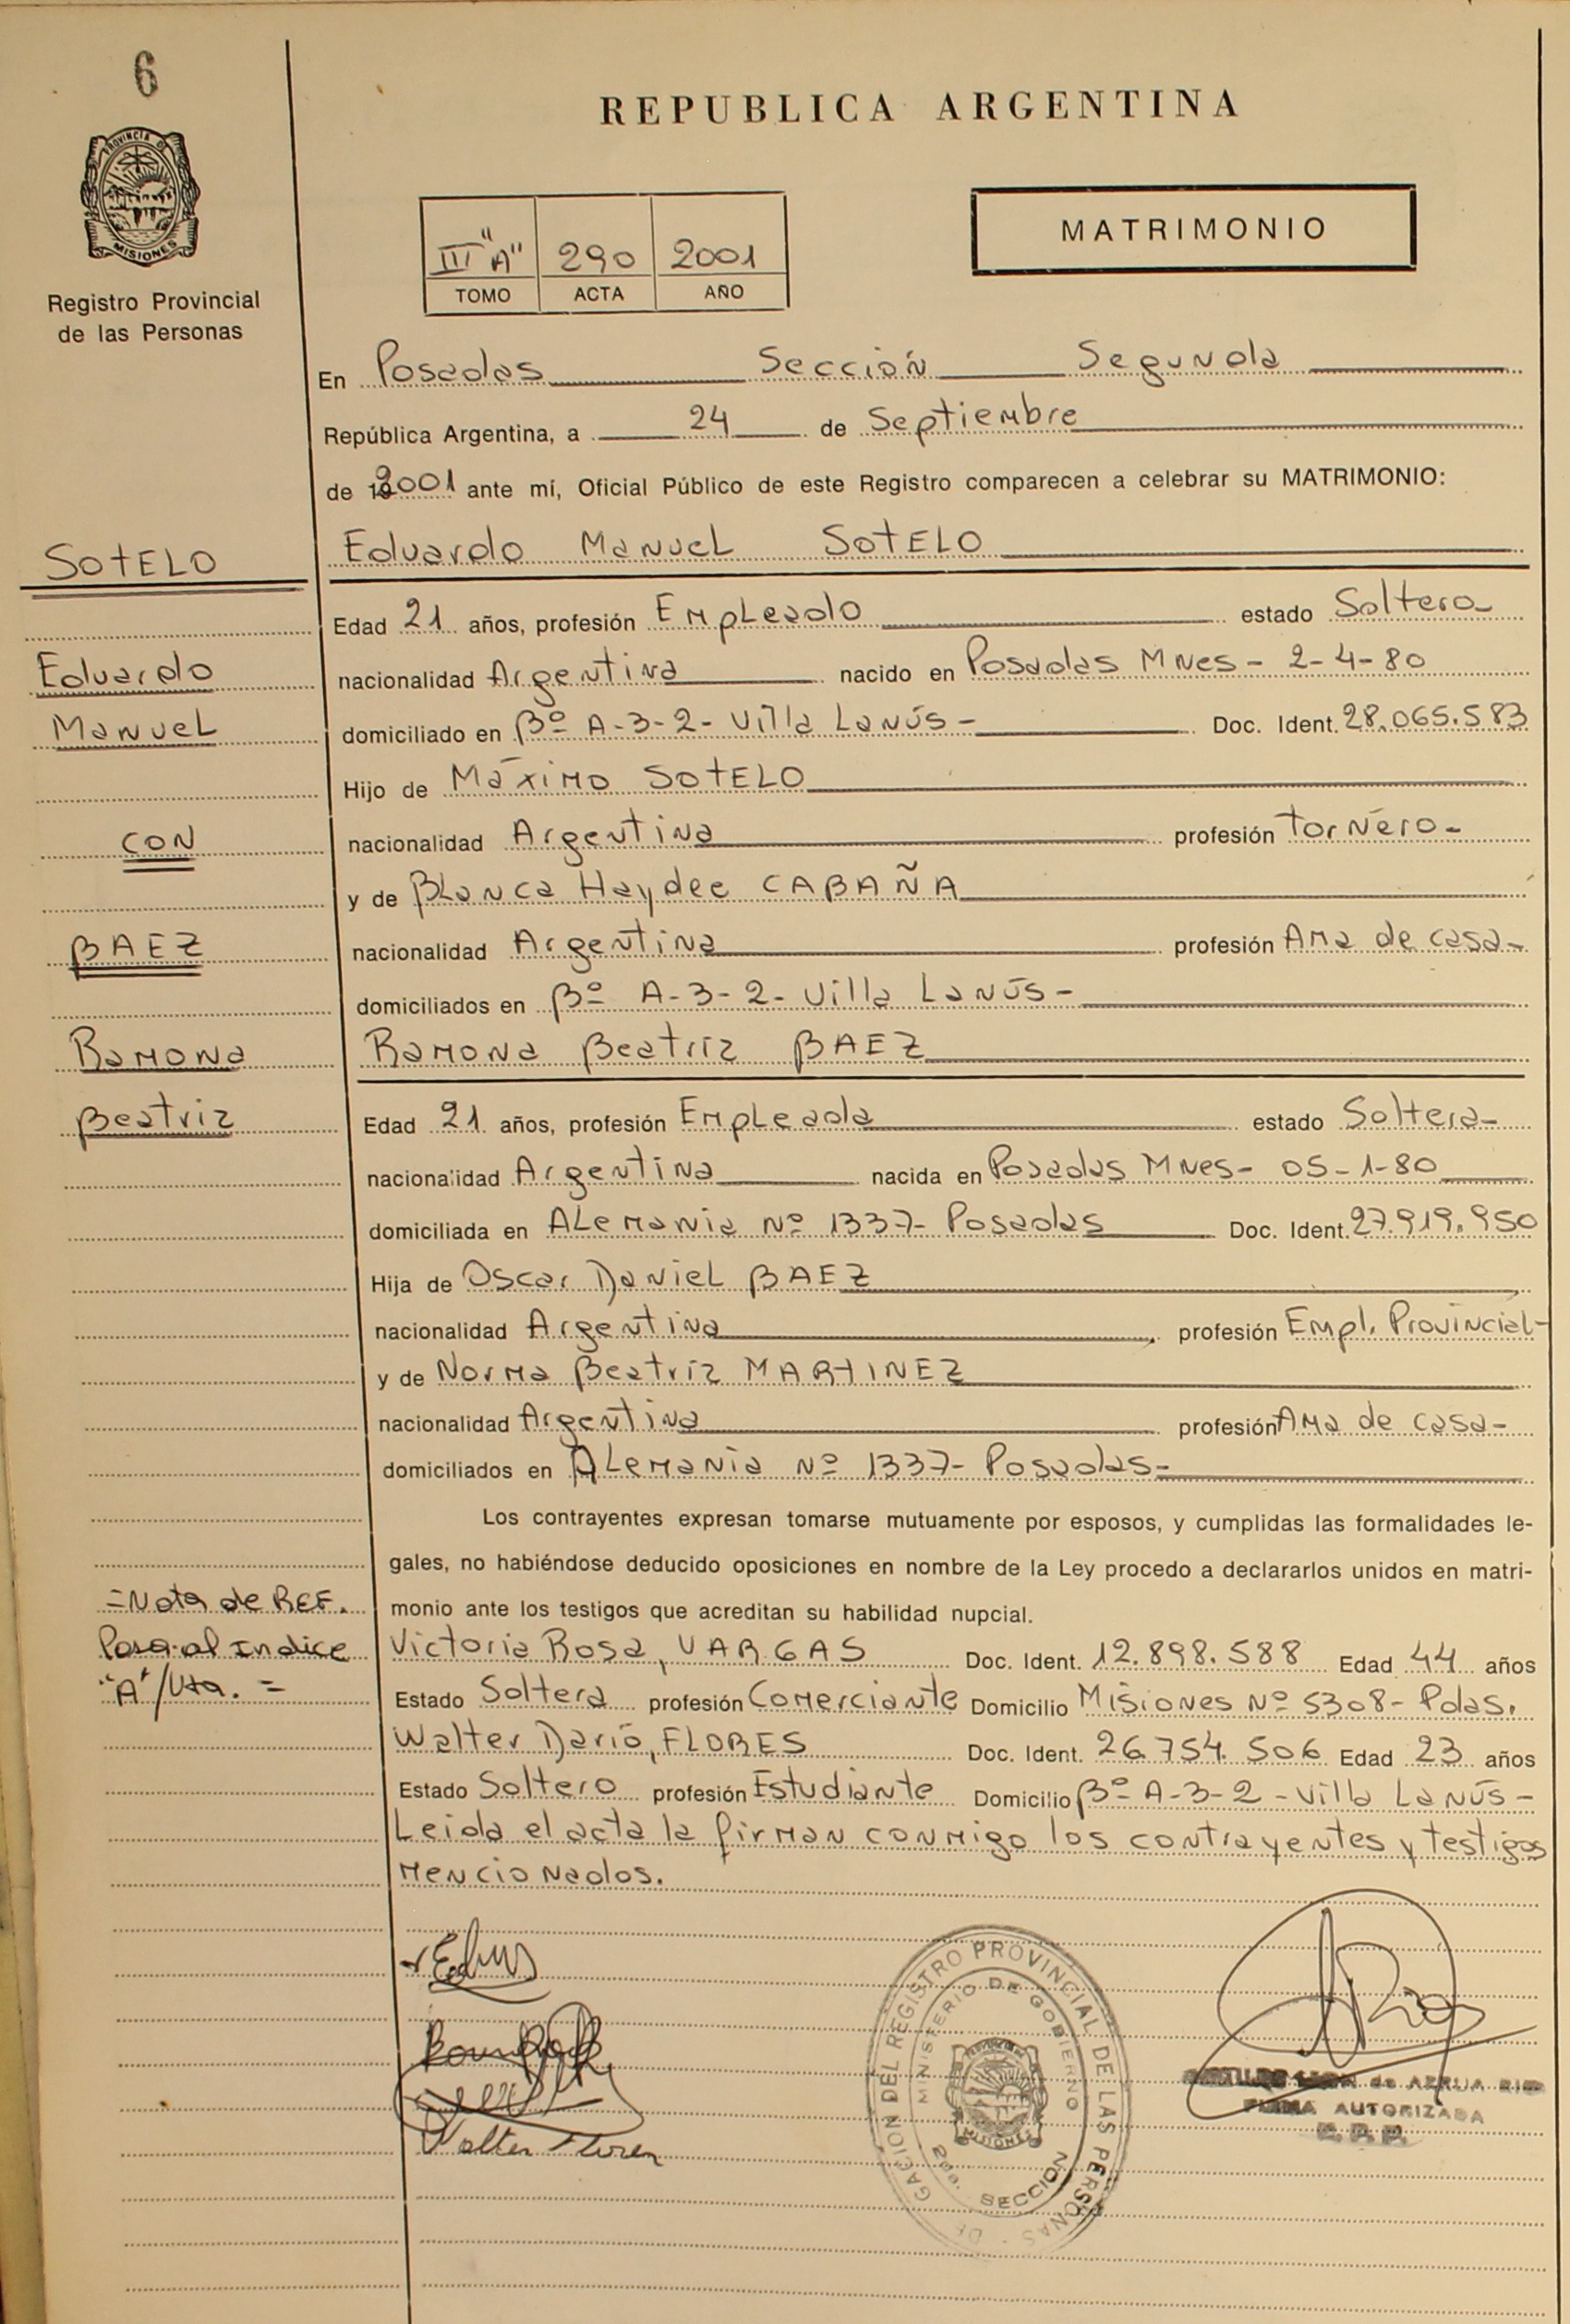 6
PROVINCIA D
MISIONES
Registro Provincial
de las Personas
REPUBLICA ARGENTINA
III "A" 290 2001
TOMO ACTA AÑO
MATRIMONIO
En Posadas Sección Segunda
República Argentina, a 24 de Septiembre
de 2001 ante mí, Oficial Público de este Registro comparecen a celebrar su MATRIMONIO:
SOTELO
Eduardo Manuel SOTELO
Edad 21 años, profesión Empleado estado Soltero-
Eduardo
nacionalidad Argentina nacido en Posadas Mnes- 2-4-80
Manuel
domiciliado en Bº A-3-2- Villa Lanús- Doc. Ident. 28.065.583
Hijo de Máximo SOTELO
CON
nacionalidad Argentina profesión Tornero-
y de Blanca Haydee CABAÑA
BAEZ
nacionalidad Argentina profesión Ama de casa-
domiciliados en Bº A-3-2- Villa Lanús-
Ramona
Ramona Beatriz BAEZ
Beatriz
Edad 21 años, profesión Empleada estado Soltera-
nacionalidad Argentina nacida en Posadas Mnes- 05-1-80
domiciliada en Alemania Nº 1337- Posadas Doc. Ident. 27.919.950
Hija de Oscar Daniel BAEZ
nacionalidad Argentina profesión Empl. Provincial-
y de Norma Beatriz MARTINEZ
nacionalidad Argentina profesión Ama de casa-
domiciliados en Alemania Nº 1337- Posadas-
Los contrayentes expresan tomarse mutuamente por esposos, y cumplidas las formalidades le-
gales, no habiéndose deducido oposiciones en nombre de la Ley procedo a declararlos unidos en matri-
monio ante los testigos que acreditan su habilidad nupcial.
=Nota de REF.
Pasa al Indice
"A"/Vta. =
Victoria Rosa, VARGAS Doc. Ident. 12.898.588 Edad 44 años
Estado Soltera profesión Comerciante Domicilio Misiones Nº 5308- Pdas.
Walter Darío, FLORES Doc. Ident. 26.754.506 Edad 23 años
Estado Soltero profesión Estudiante Domicilio Bº A-3-2- Villa Lanús-
Leida el acta la firman conmigo los contrayentes y testigos
mencionados.
Walter Flores
GACION DEL REGISTRO PROVINCIAL DE LAS PERSONAS
MINISTERIO DE GOBIERNO
MISIONES
SECCION
de AZRUA
FIRMA AUTORIZADA
R.P.P.